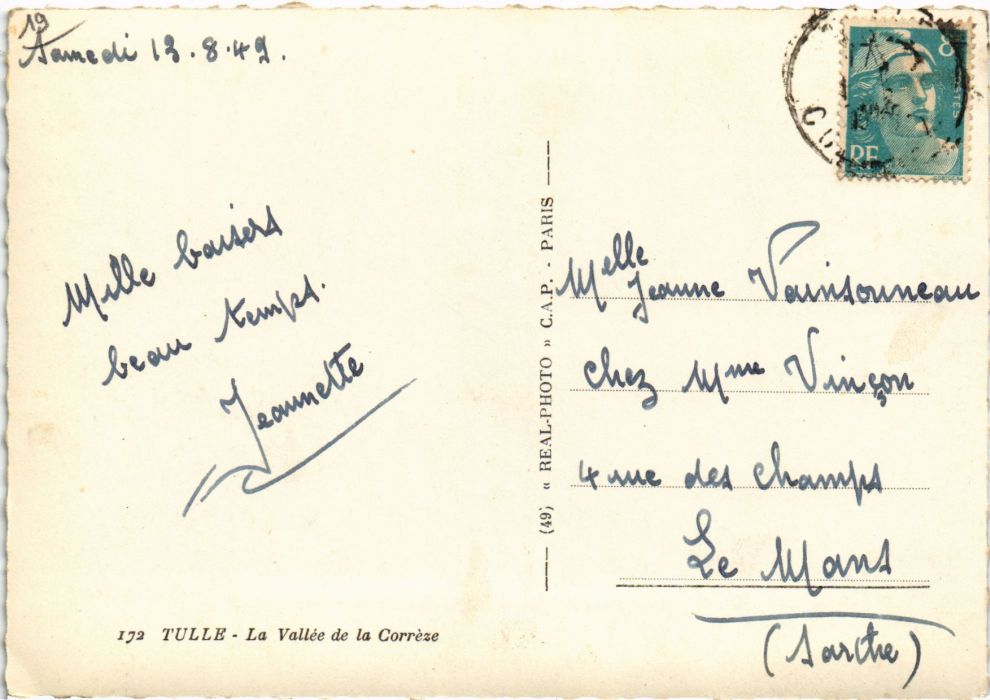 19
Samedi 13.8.49.
Mille baisers
beau temps.
Jeannette
172 TULLE - La Vallée de la Corrèze
(49) « REAL-PHOTO » C.A.P. - PARIS
RF
Melle Jeanne Vainsouneau
chez Mme Vinçon
4 rue des Champs
Le Mans
(Sarthe)